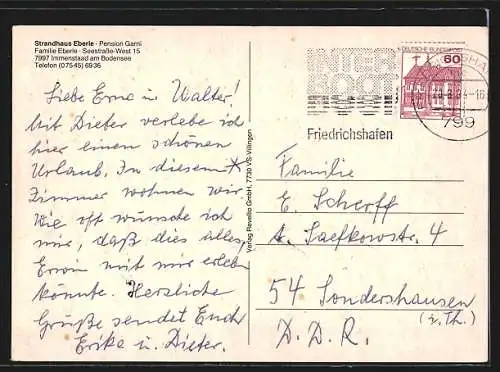 Strandhaus Eberle · Pension Garni
Familie Eberle - Seestraße-West 15
7997 Immenstaad am Bodensee
Telefon (07545) 6936
Liebe Erna u. Walter!
Mit Dieter verlebe ich
hier einen schönen
Urlaub. In diesem *
Zimmer wohnen wir
Wie oft wünsche ich
mir, daß dies alles
Erwin mit mir erleben
könnte. Herzliche
Grüße sendet Euch
Erika u. Dieter.
Verlag Resello GmbH, 7730 VS-Villingen
INTER
BOOT
Friedrichshafen
DEUTSCHE BUNDESPOST
60
799
Familie
E. Scherff
A. Saefkowstr. 4
54 Sondershausen
(i. Th.)
D.D.R.